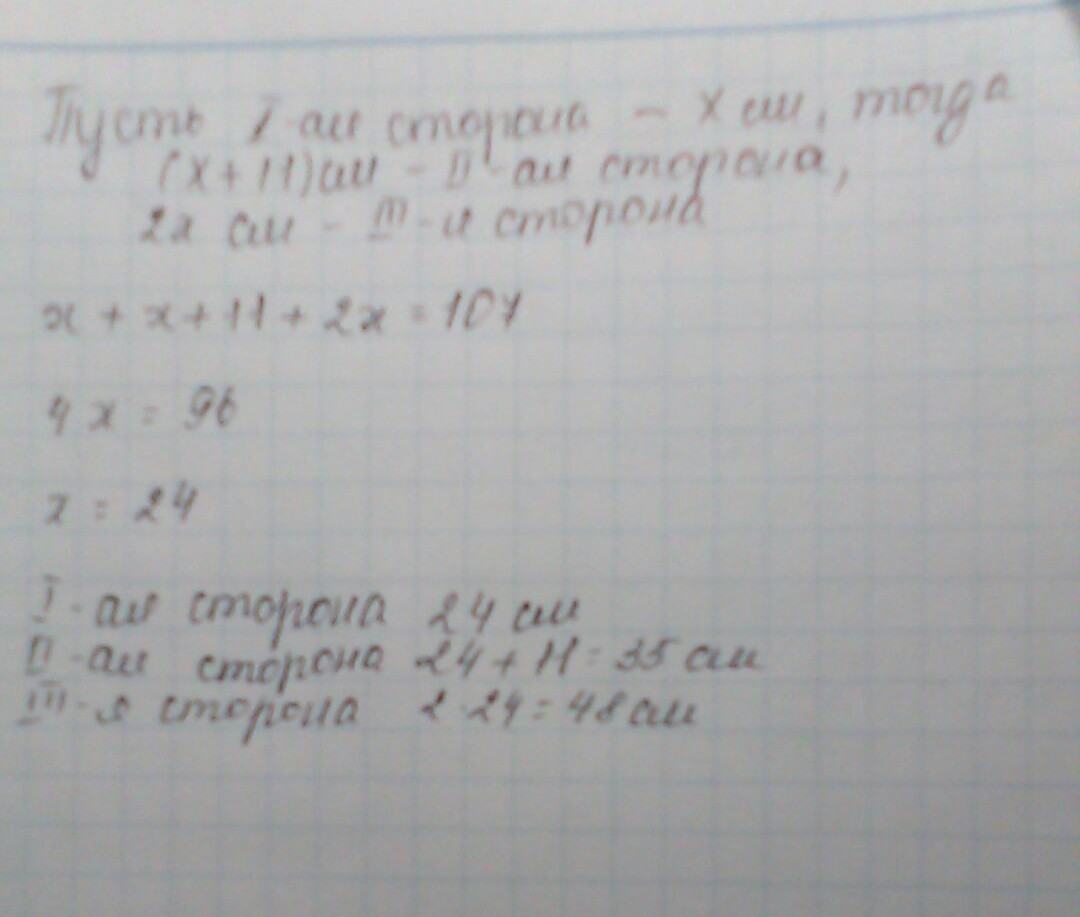 Пусть I-ая сторона - x см, тогда
(x+11)см - II-ая сторона,
2x см - III-я сторона
x + x + 11 + 2x = 107
4x = 96
x = 24
I-ая сторона 24 см
II-ая сторона 24 + 11 = 35 см
III-я сторона 2·24 = 48 см